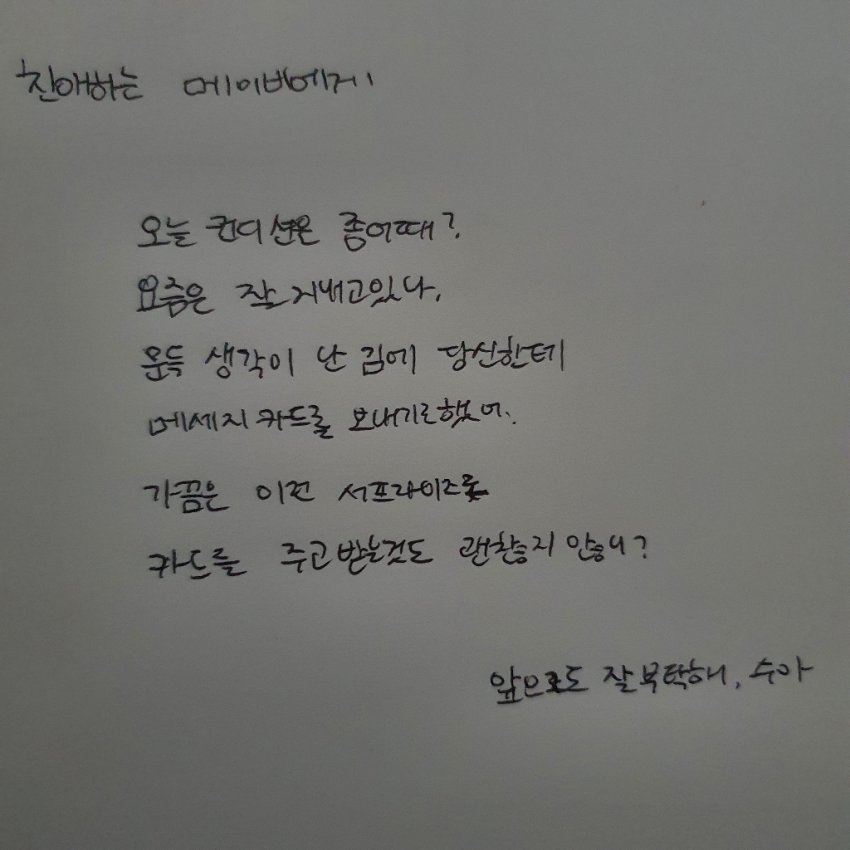 친애하는 메이비에게
오늘 컨디션은 좀 어때?
요즘은 잘 지내고있다.
문득 생각이 난 김에 당신한테
메세지 카드를 보내기로했어.
가끔은 이런 서프라이즈로
카드를 주고받는것도 괜찮지 않니?
앞으로도 잘 부탁해, 수아